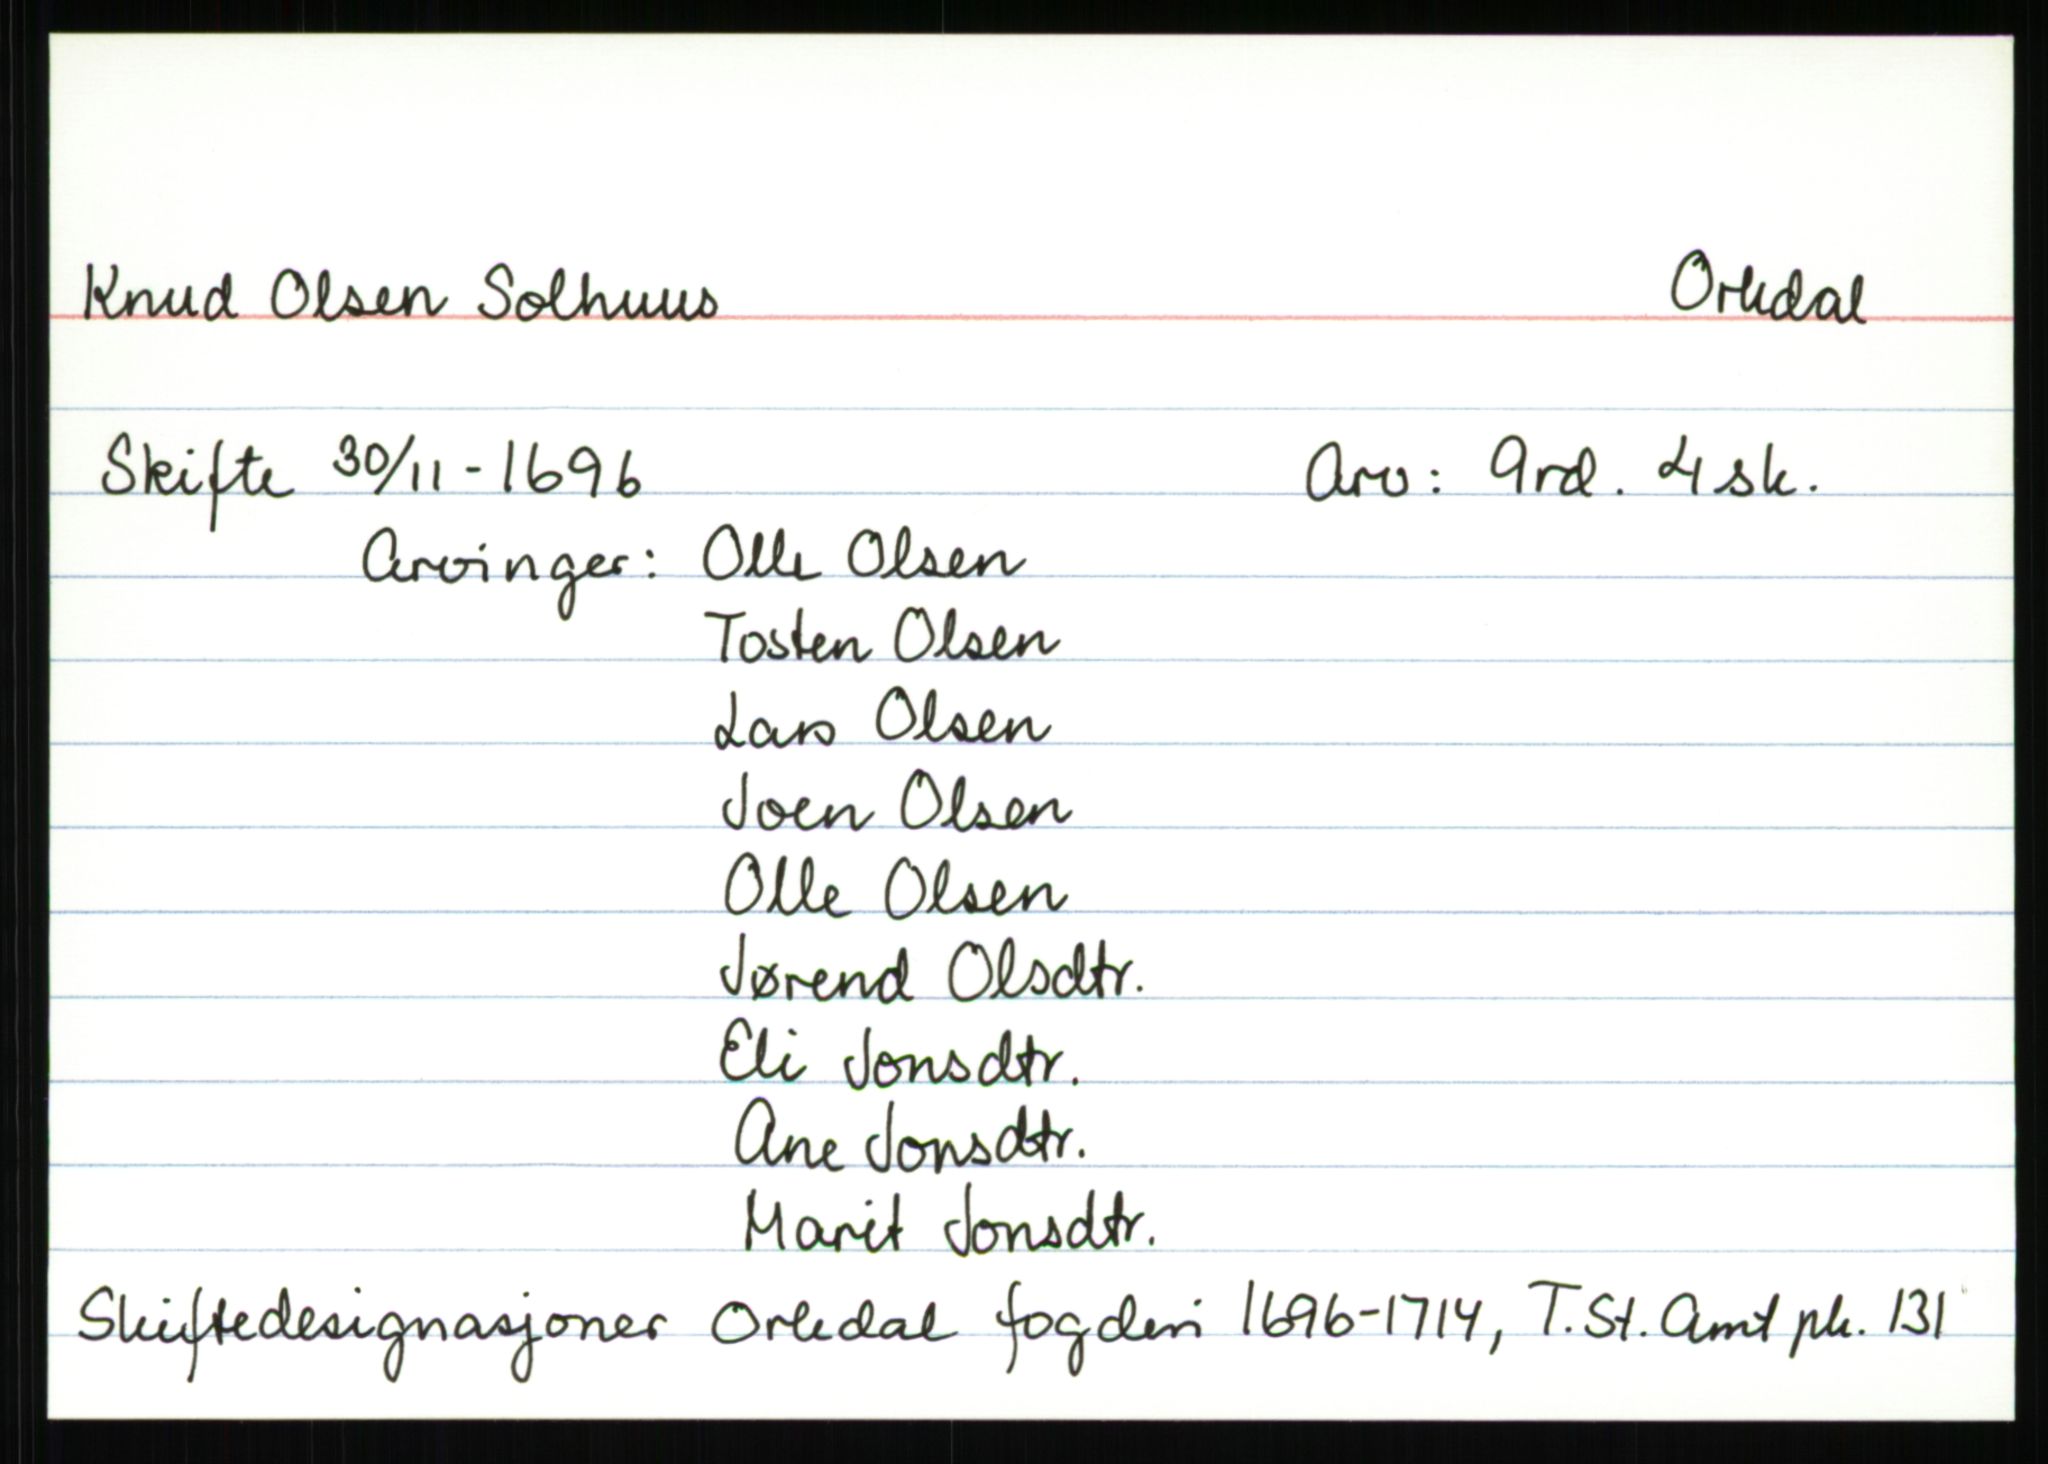 Knud Olsen Solhuus Orkdal
Skifte 30/11-1696 Arv: 9rd. 4 sk.
Arvinger: Olle Olsen
Tosten Olsen
Lars Olsen
Joen Olsen
Olle Olsen
Jørend Olsdtr.
Eli Jonsdtr.
Ane Jonsdtr.
Marit Jonsdtr.
Skiftedesignasjoner Orkdal fogderi 1696-1714, T. St. Amt pk. 131